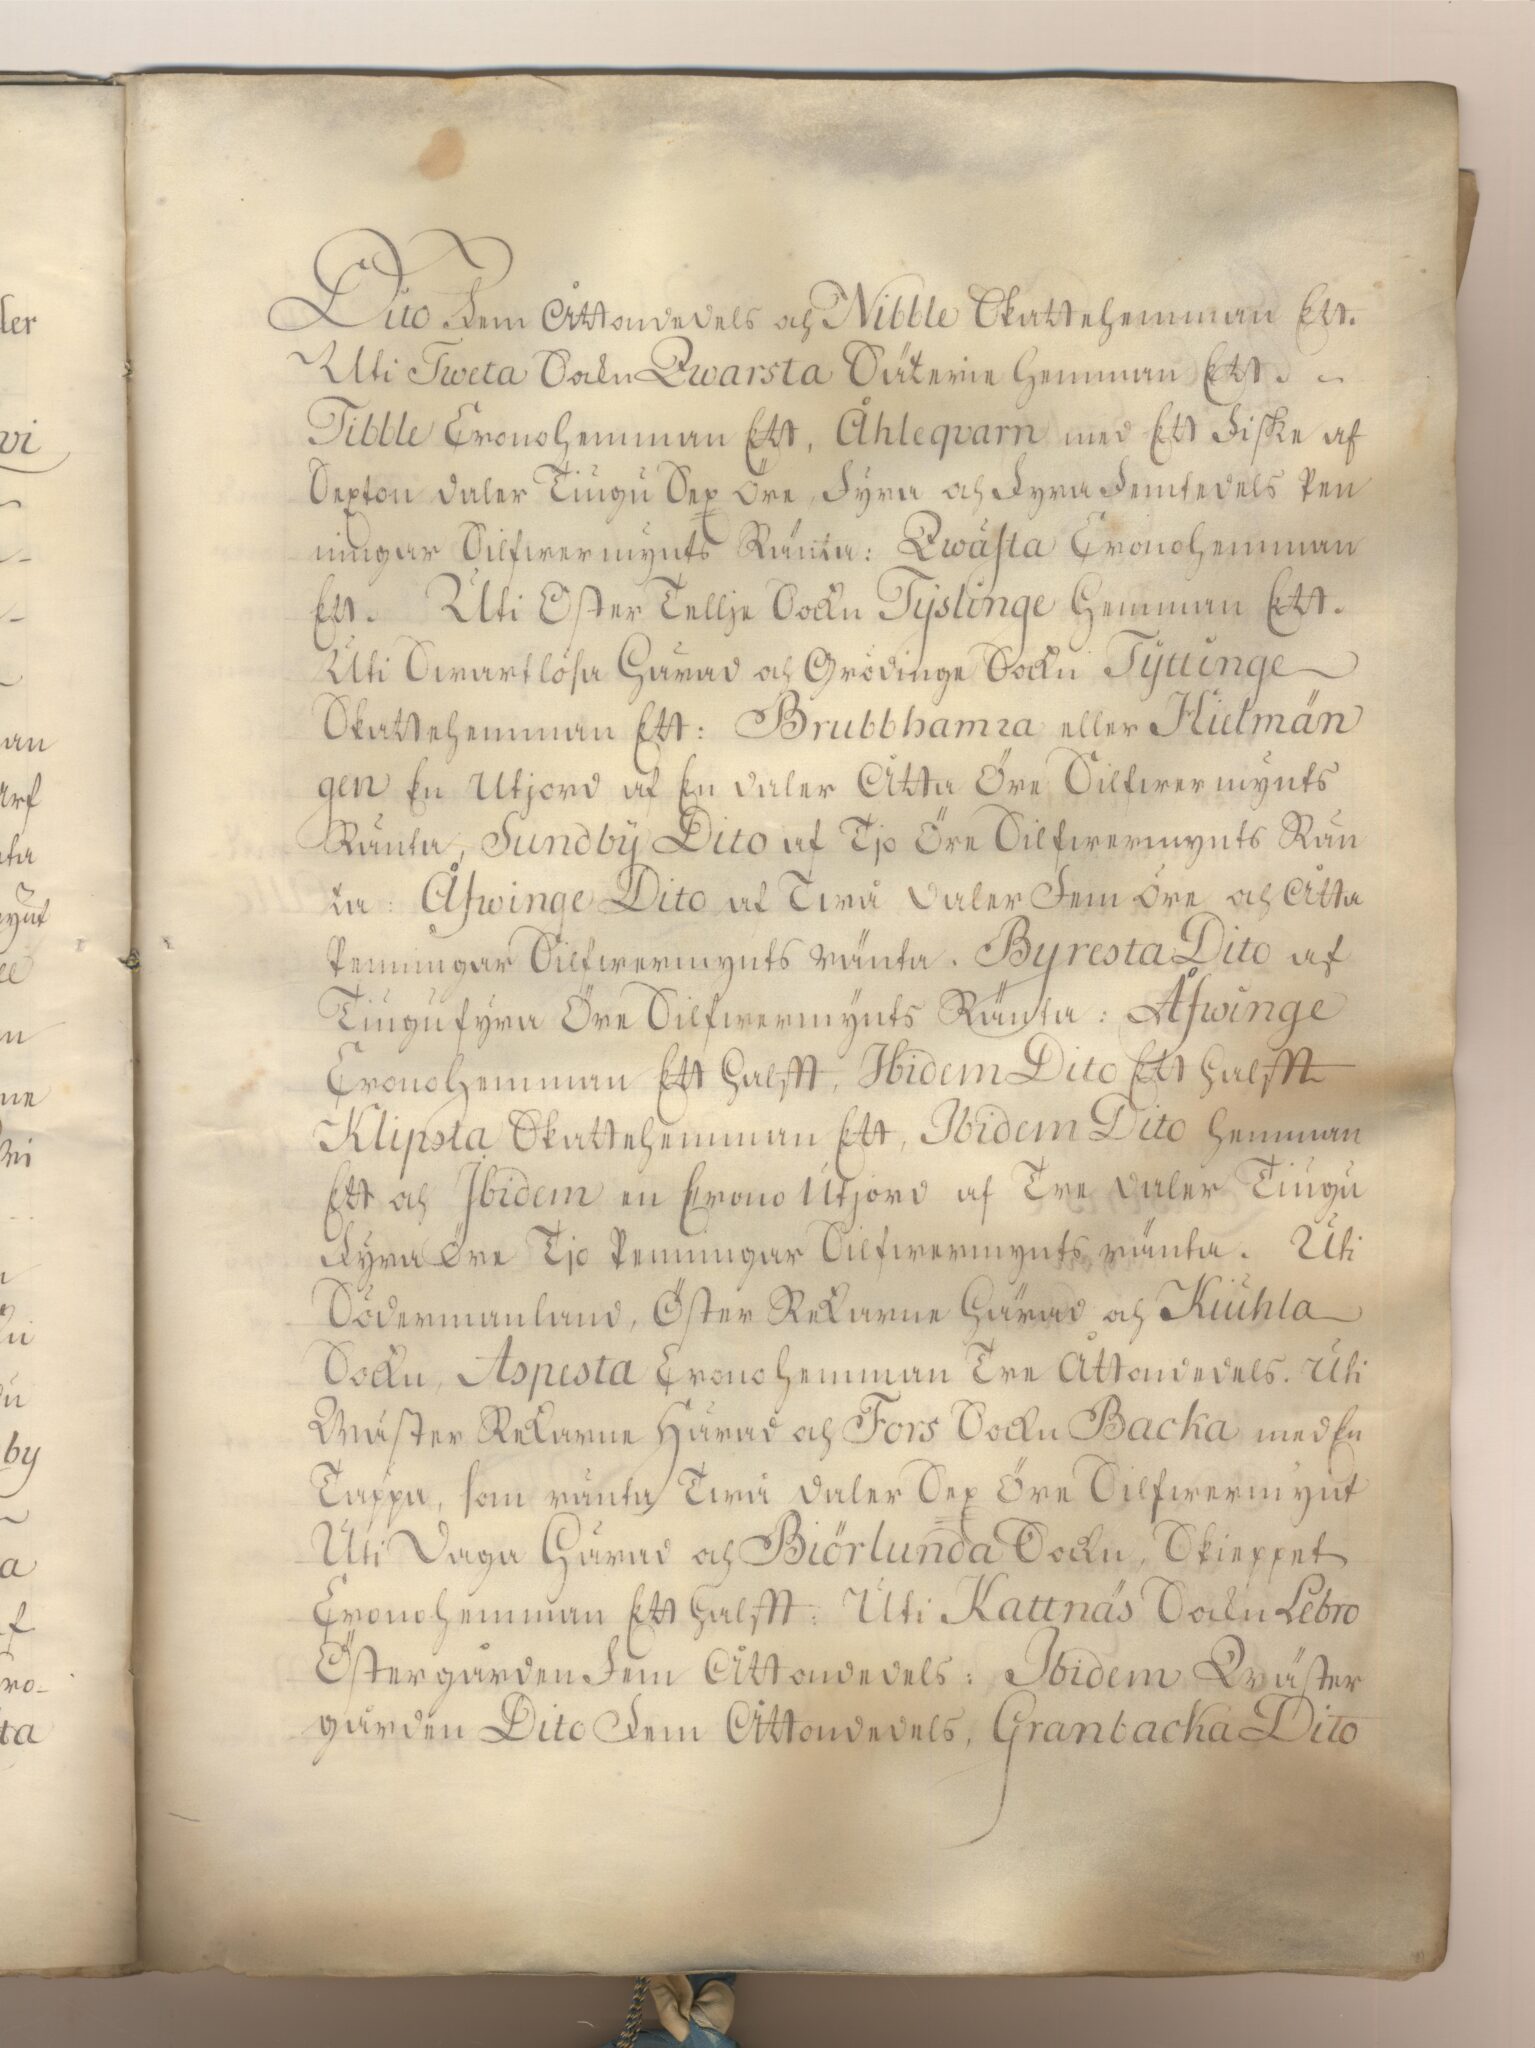 Dito Fem Åttondedels och Nibble Skattehemman Ett.
Uti Tweta Sockn Qwarsta Säterie Hemman Ett.
Tibble Cronohemman Ett, Åhleqvarn med Ett Fiske af
Sexton daler Tiugu Sex Öre, Fyra och Fyra Femtedels Pen
ningar Silfwermynts Ränta: Qwästa Cronohemman
Ett. Uti Öster Tellje Sockn Tyslinge Hemman Ett.
Uti Swartlösa Härad och Grödinge Sockn Tyttinge
Skattehemman Ett: Brubbhamra eller Kielmän
gen En Utjord af En daler Åtta Öre Silfwermynts
Ränta, Sundbÿ Dito af Tjo Öre Silfwermynts Rän
ta: Åfwinge Dito af Twå daler Fem öre och Åtta
Penningar Silfwermynts ränta. Byresta Dito af
Tiugufyra Öre Silfwermÿnts Ränta: Åfwinge
Cronohemman Ett Halfft, Ibidem Dito Ett Halfft
Klipsta Skattehemman Ett, Ibidem Dito Hemman
Ett och Ibidem en Crono Utjord af Tre daler Tiugu
Fyra Öre Tjo Penningar Silfwermynts ränta. Uti
Södermanland, Öster Rekarne Härad och Kiuhla
Sockn, Aspesta Cronohemman Tre Åttondedels. Uti
Wäster Rekarne Härad och Fors Sockn Backa med En
Täppa, som ränta Twå daler Sex Öre Silfwermynt
Uti Daga Härad och Biörlunda Sockn, Skieppet
Cronohemman Ett Halfft: Uti Kattnäs Sockn Lebro
Östergården Fem Åttondedels: Ibidem Wäster
gården Dito Fem Åttondedels, Granbacka Dito